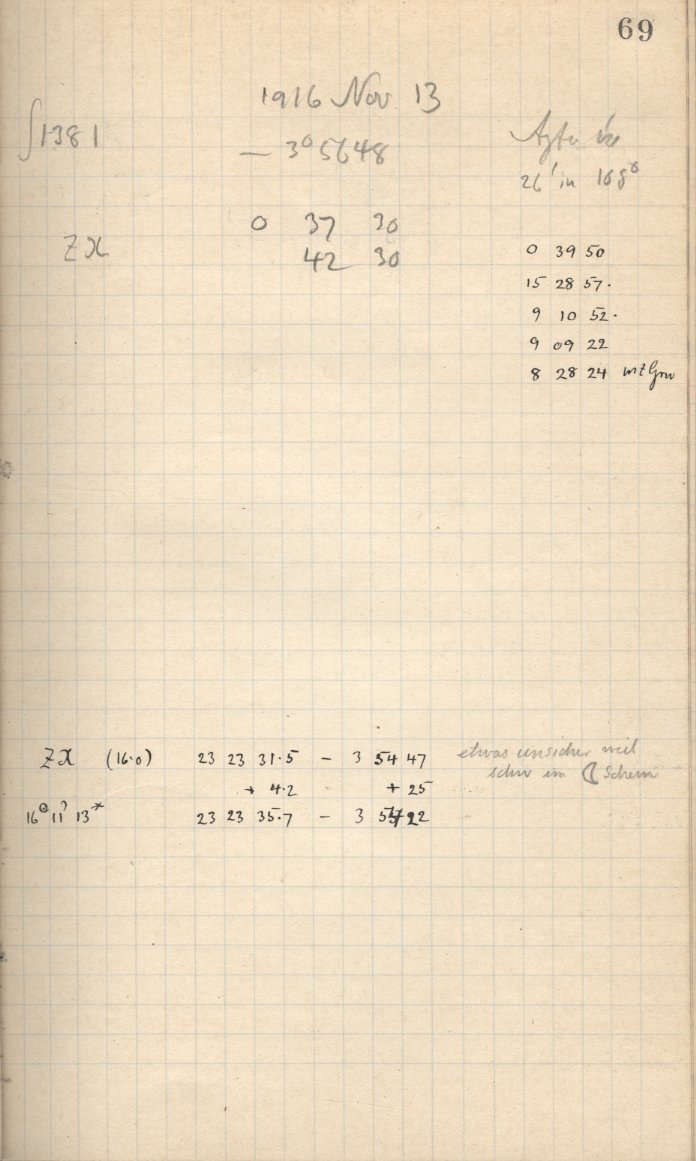 69
1916 Nov 13
∫1381 — 3° 56 48
26' in 168°
0 37 30
ZX 42 30
0 39 50
15 28 57.
9 10 52.
9 09 22
8 28 24 mt Grw
ZX (16.0) 23 23 31.5 – 3 54 47 etwas unsicher weil
schw im ☾ Schein
+ 4.2 + 25
16 11 13* 23 23 35.7 – 3 54 22